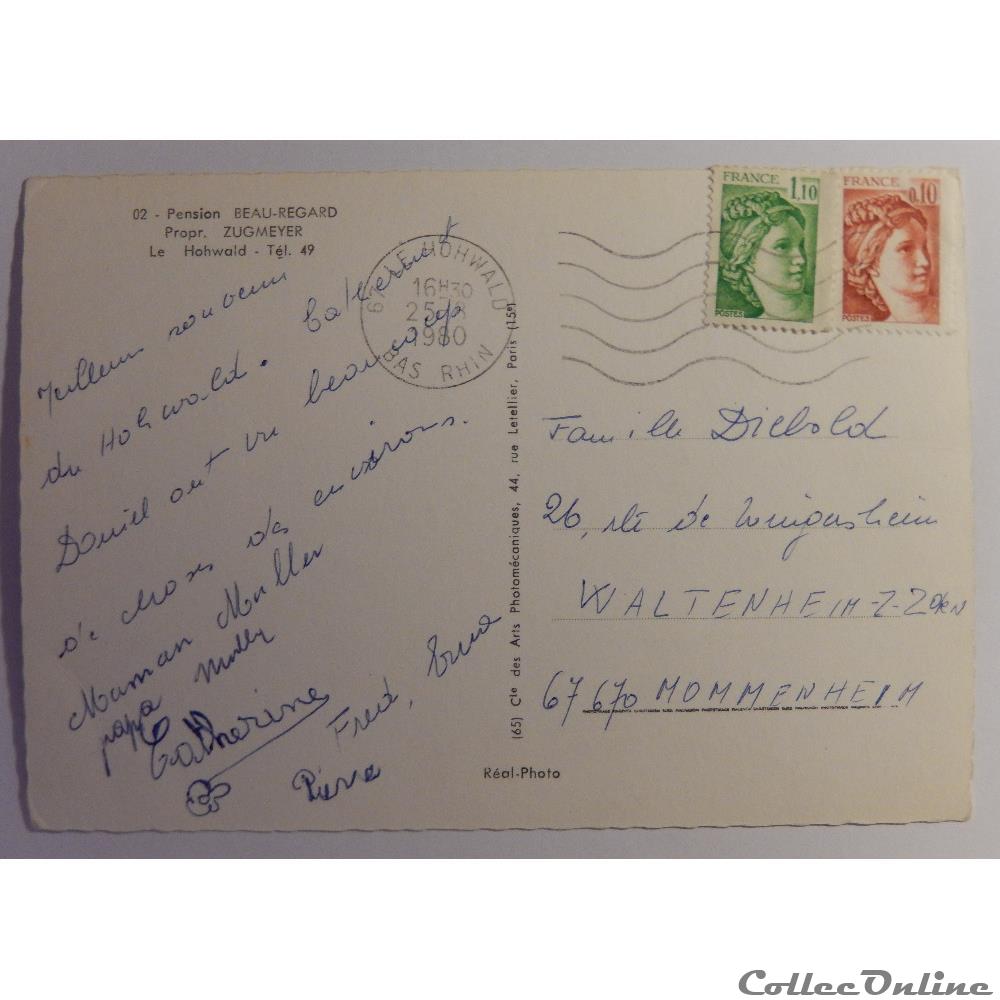 02 - Pension BEAU-REGARD
Propr. ZUGMEYER
Le Hohwald - Tél. 49
du Hohwald. Catherine et
Daniel ont vu beaucoup
de choses des environs.
Maman Muller
papa Muller
Catherine
Fred,
Pierre
67 LE HOHWALD
16H30
25-8
1980
BAS RHIN
(65) Cie des Arts Photomécaniques, 44, rue Letellier, Paris (15e)
Réal-Photo
FRANCE
1,10
POSTES
FRANCE
0,10
POSTES
Famille Diebold
26, rte de Wingersheim
WALTENHEIM-Z-ZORN
67670 MOMMENHEIM
CollecOnline